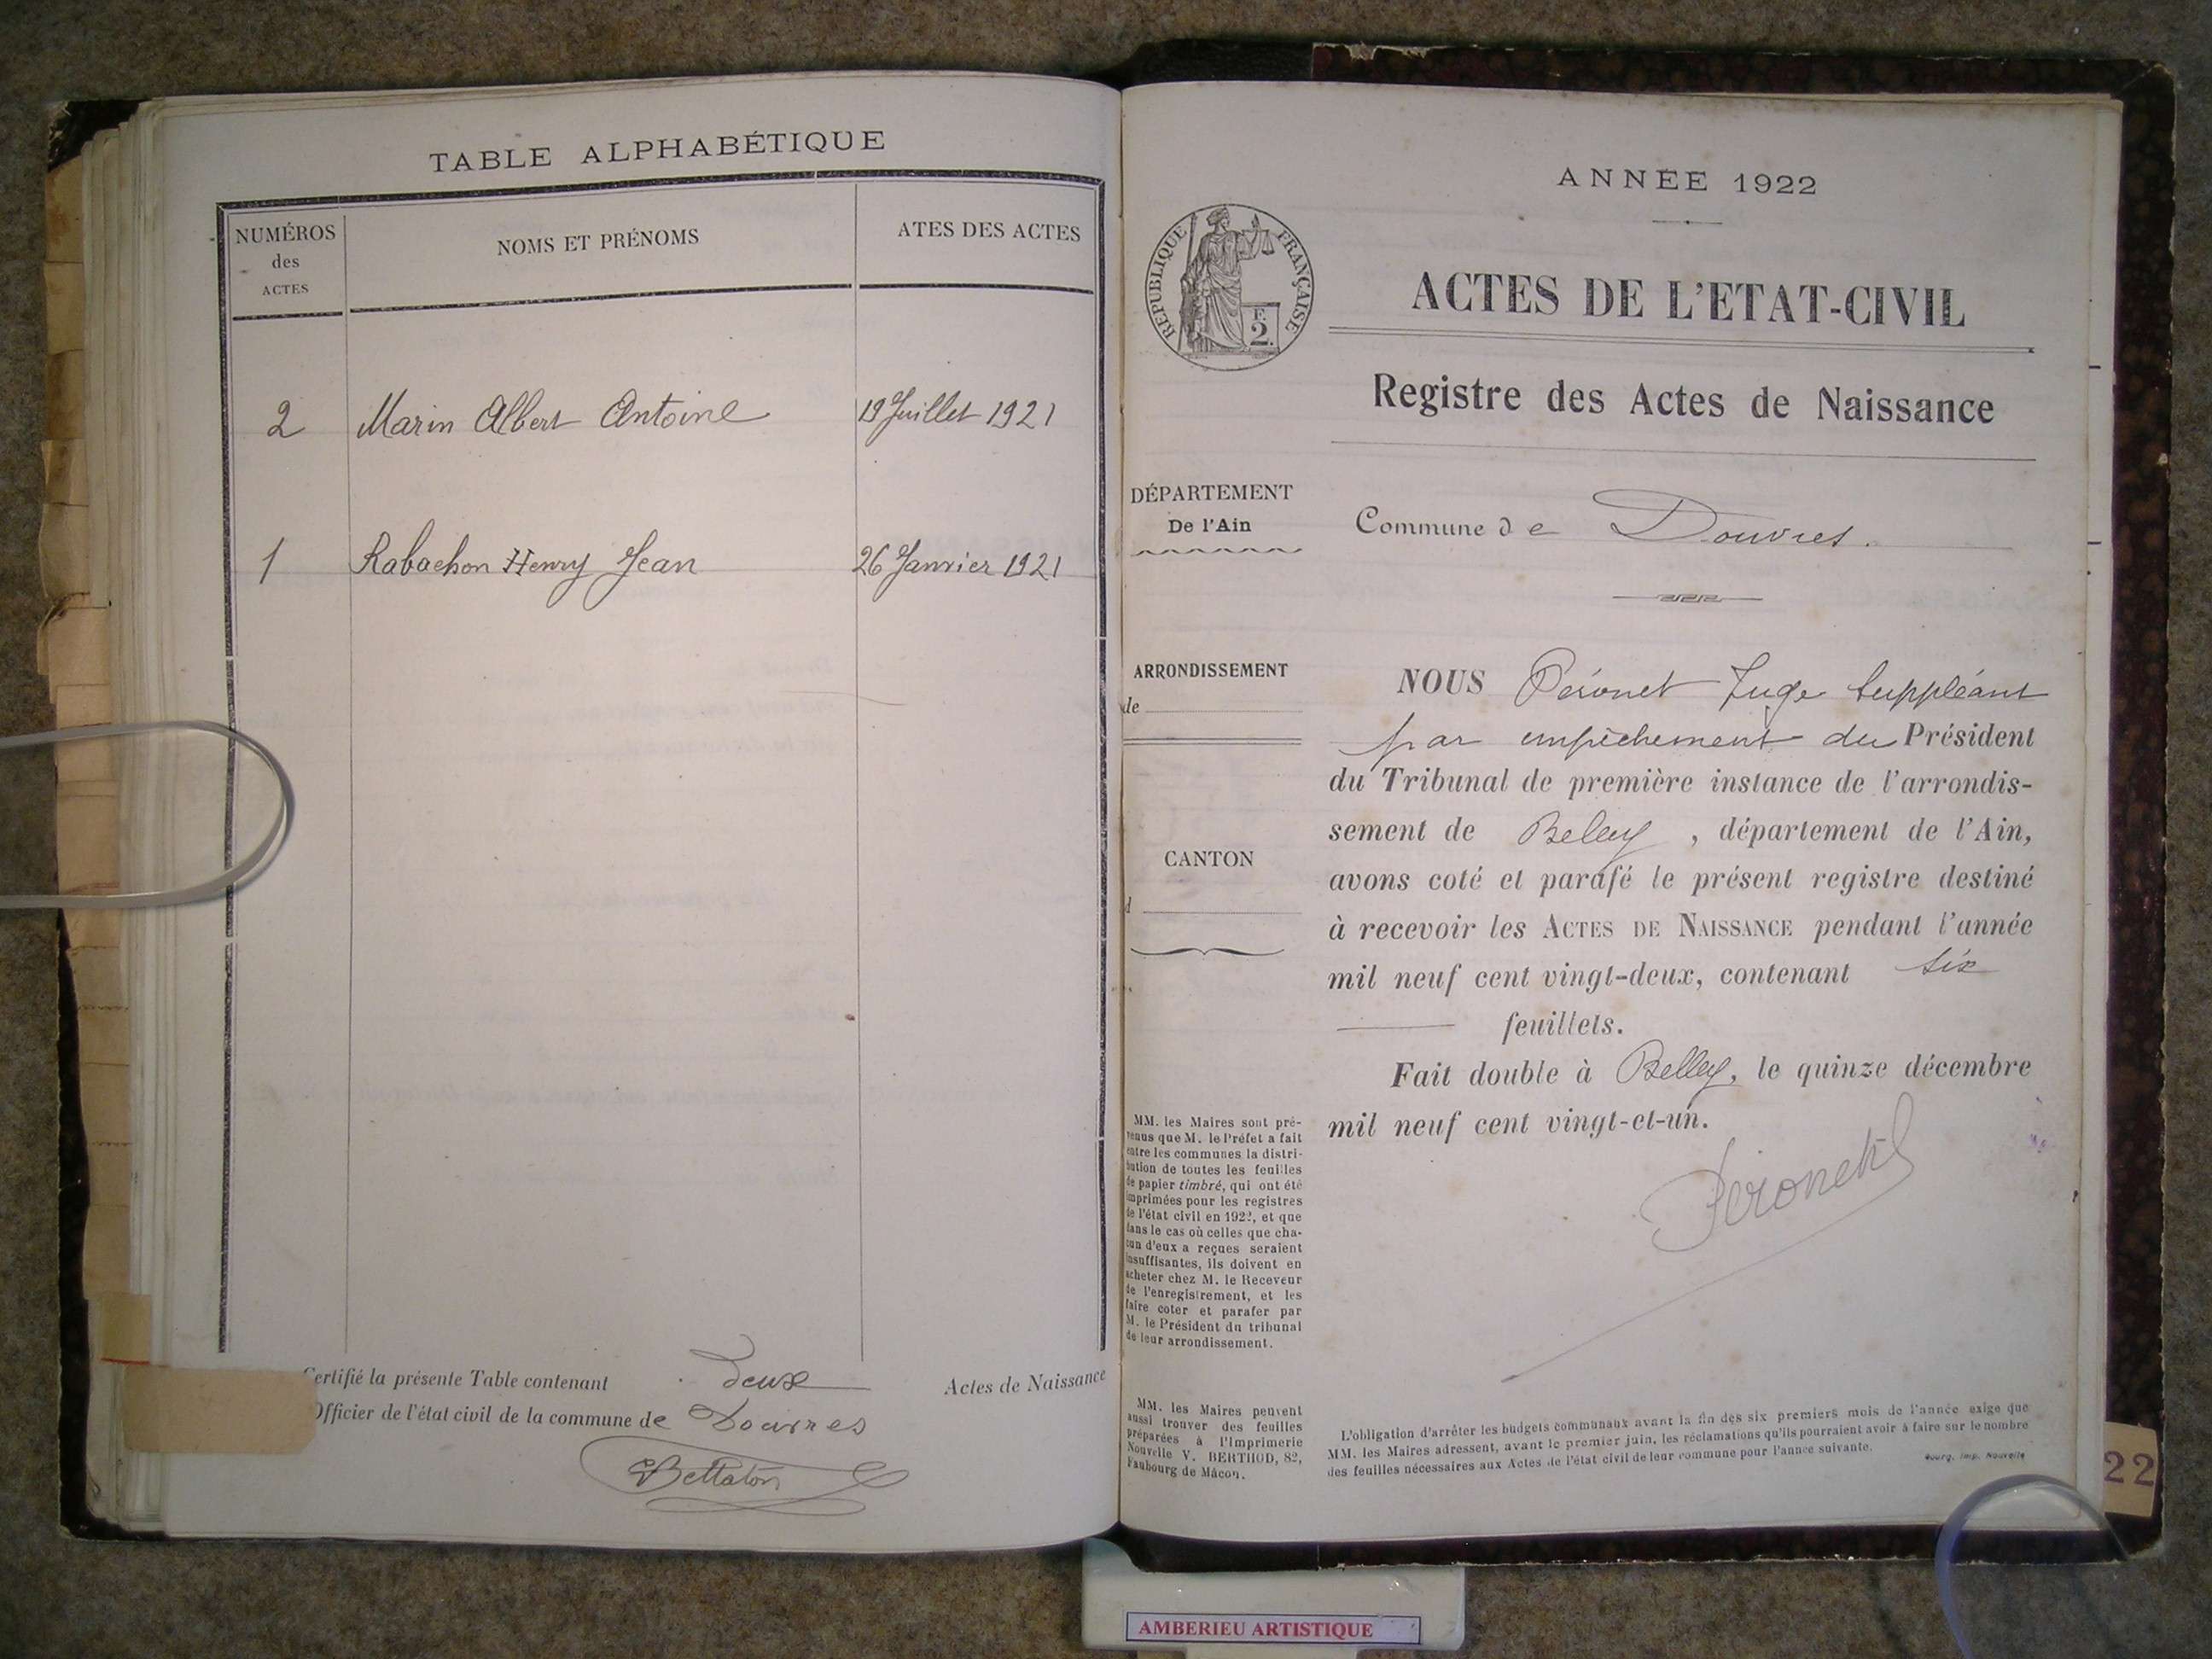 TABLE ALPHABÉTIQUE
NUMÉROS
des
ACTES
NOMS ET PRÉNOMS
ATES DES ACTES
2 Marin Albert Antoine 19 Juillet 1921
1 Rabachon Henry Jean 26 Janvier 1921
Certifié la présente Table contenant deux Actes de Naissance
Officier de l'état civil de la commune de Douvres
Bettaton
ANNÉE 1922
RÉPUBLIQUE FRANÇAISE
F.
2.
ACTES DE L'ETAT-CIVIL
Registre des Actes de Naissance
DÉPARTEMENT
De l'Ain
Commune de Douvres.
ARRONDISSEMENT
de
CANTON
d
NOUS Péronet Juge Suppléant
par empêchement du Président
du Tribunal de première instance de l'arrondis-
sement de Belley, département de l'Ain,
avons coté et parafé le présent registre destiné
à recevoir les ACTES DE NAISSANCE pendant l'année
mil neuf cent vingt-deux, contenant six
feuillets.
Fait double à Belley, le quinze décembre
mil neuf cent vingt-et-un.
Péronet
MM. les Maires sont pré-
venus que M. le Préfet a fait
entre les communes la distri-
bution de toutes les feuilles
de papier timbré, qui ont été
imprimées pour les registres
de l'état civil en 1922, et que
dans le cas où celles que cha-
cun d'eux a reçues seraient
insuffisantes, ils doivent en
acheter chez M. le Receveur
de l'enregistrement, et les
faire coter et parafer par
M. le Président du tribunal
de leur arrondissement.
MM. les Maires peuvent
aussi trouver des feuilles
préparées à l'Imprimerie
Nouvelle V. BERTHOD, 82,
Faubourg de Mâcon.
L'obligation d'arrêter les budgets communaux avant la fin des six premiers mois de l'année exige que
MM. les Maires adressent, avant le premier juin, les réclamations qu'ils pourraient avoir à faire sur le nombre
des feuilles nécessaires aux Actes de l'état civil de leur commune pour l'année suivante.
Bourg, Imp. Nouvelle
22
AMBERIEU ARTISTIQUE